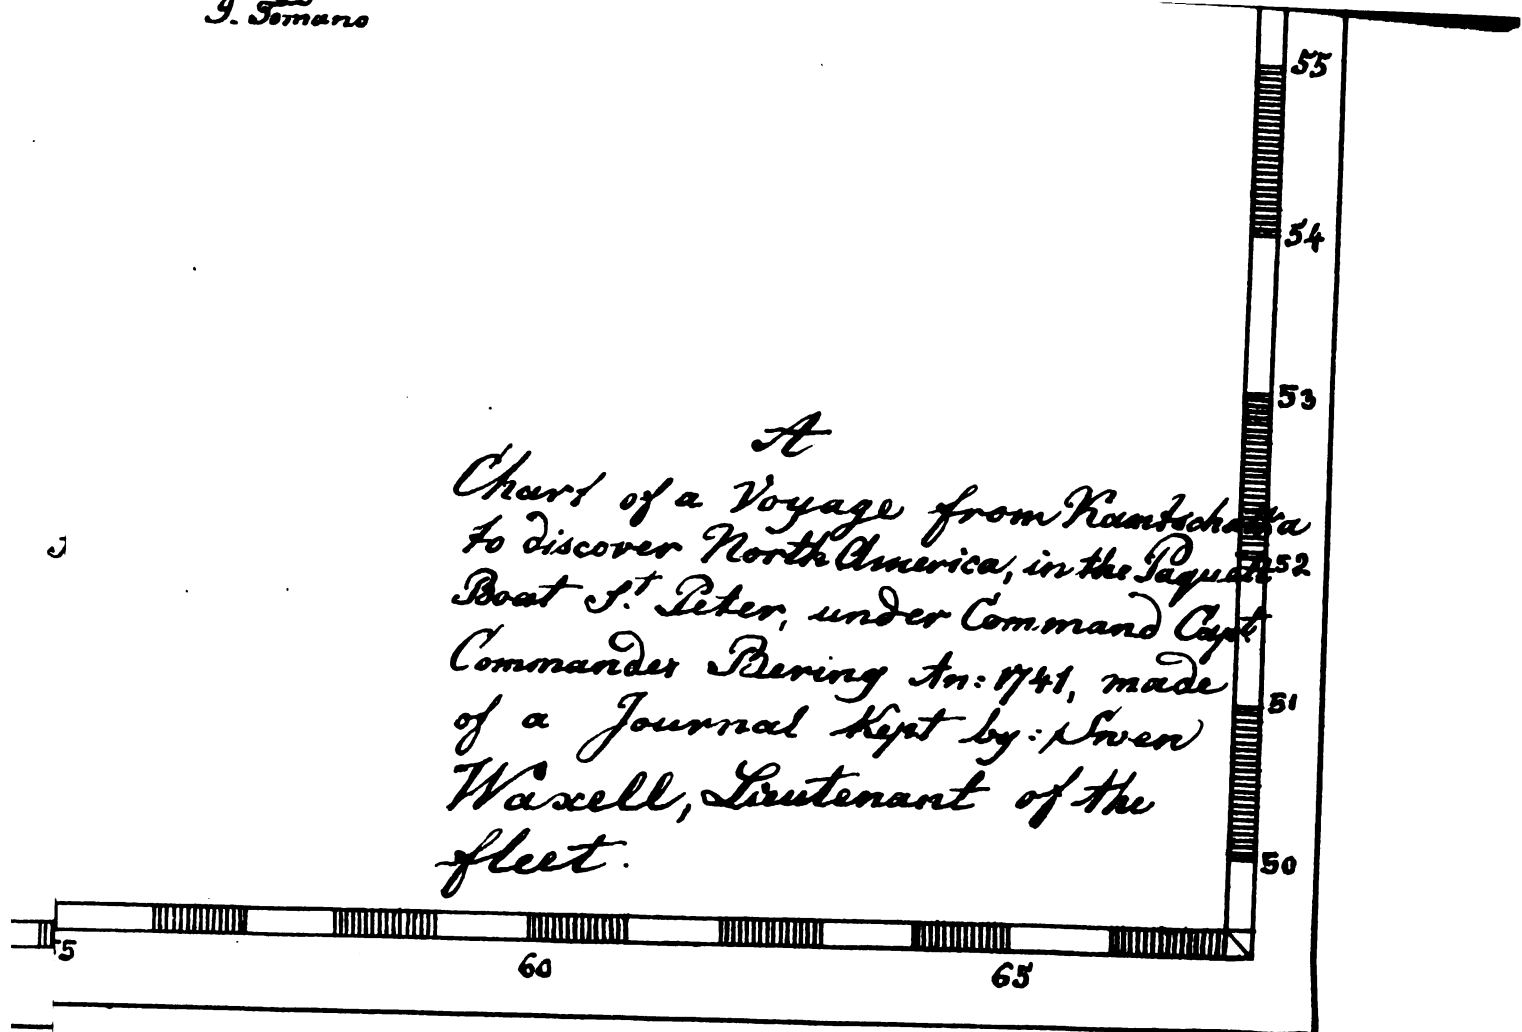 J. Tomano
55
54
53
A
Chart of a Voyage from Kamtschatka
to discover North America, in the Paquett
52
Boat S.t Peter, under Command Capt
Commander Bering An: 1741, made
51
of a Journal Kept by: Swen
Waxell, Lieutenant of the
fleet.
50
5
60
65